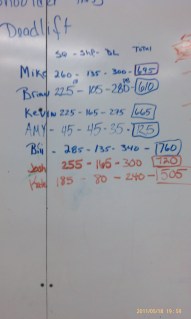 Deadlift
SQ - SHP - DL TOTAL
Mike 260 - 135 - 300 - 695
Brian 225 - 105 - 280 - 610
Kevin 225 - 165 - 275 665
AMY - 45 - 45 - 35 - 125
Bill - 285 - 135 - 340 - 760
Josh 255 - 165 - 300 720
Kate 185 - 80 - 240 - 505
2011/05/18